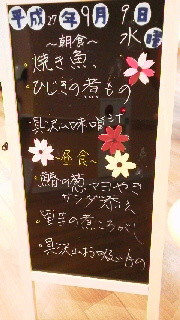 平成27年9月9日
水曜
～朝食～
・焼き魚
・ひじきの煮もの
・具沢山味噌汁
～昼食～
・鰆の葱マヨやき
サンダ添え
・里芋の煮ころがし
・具沢山お吸い物